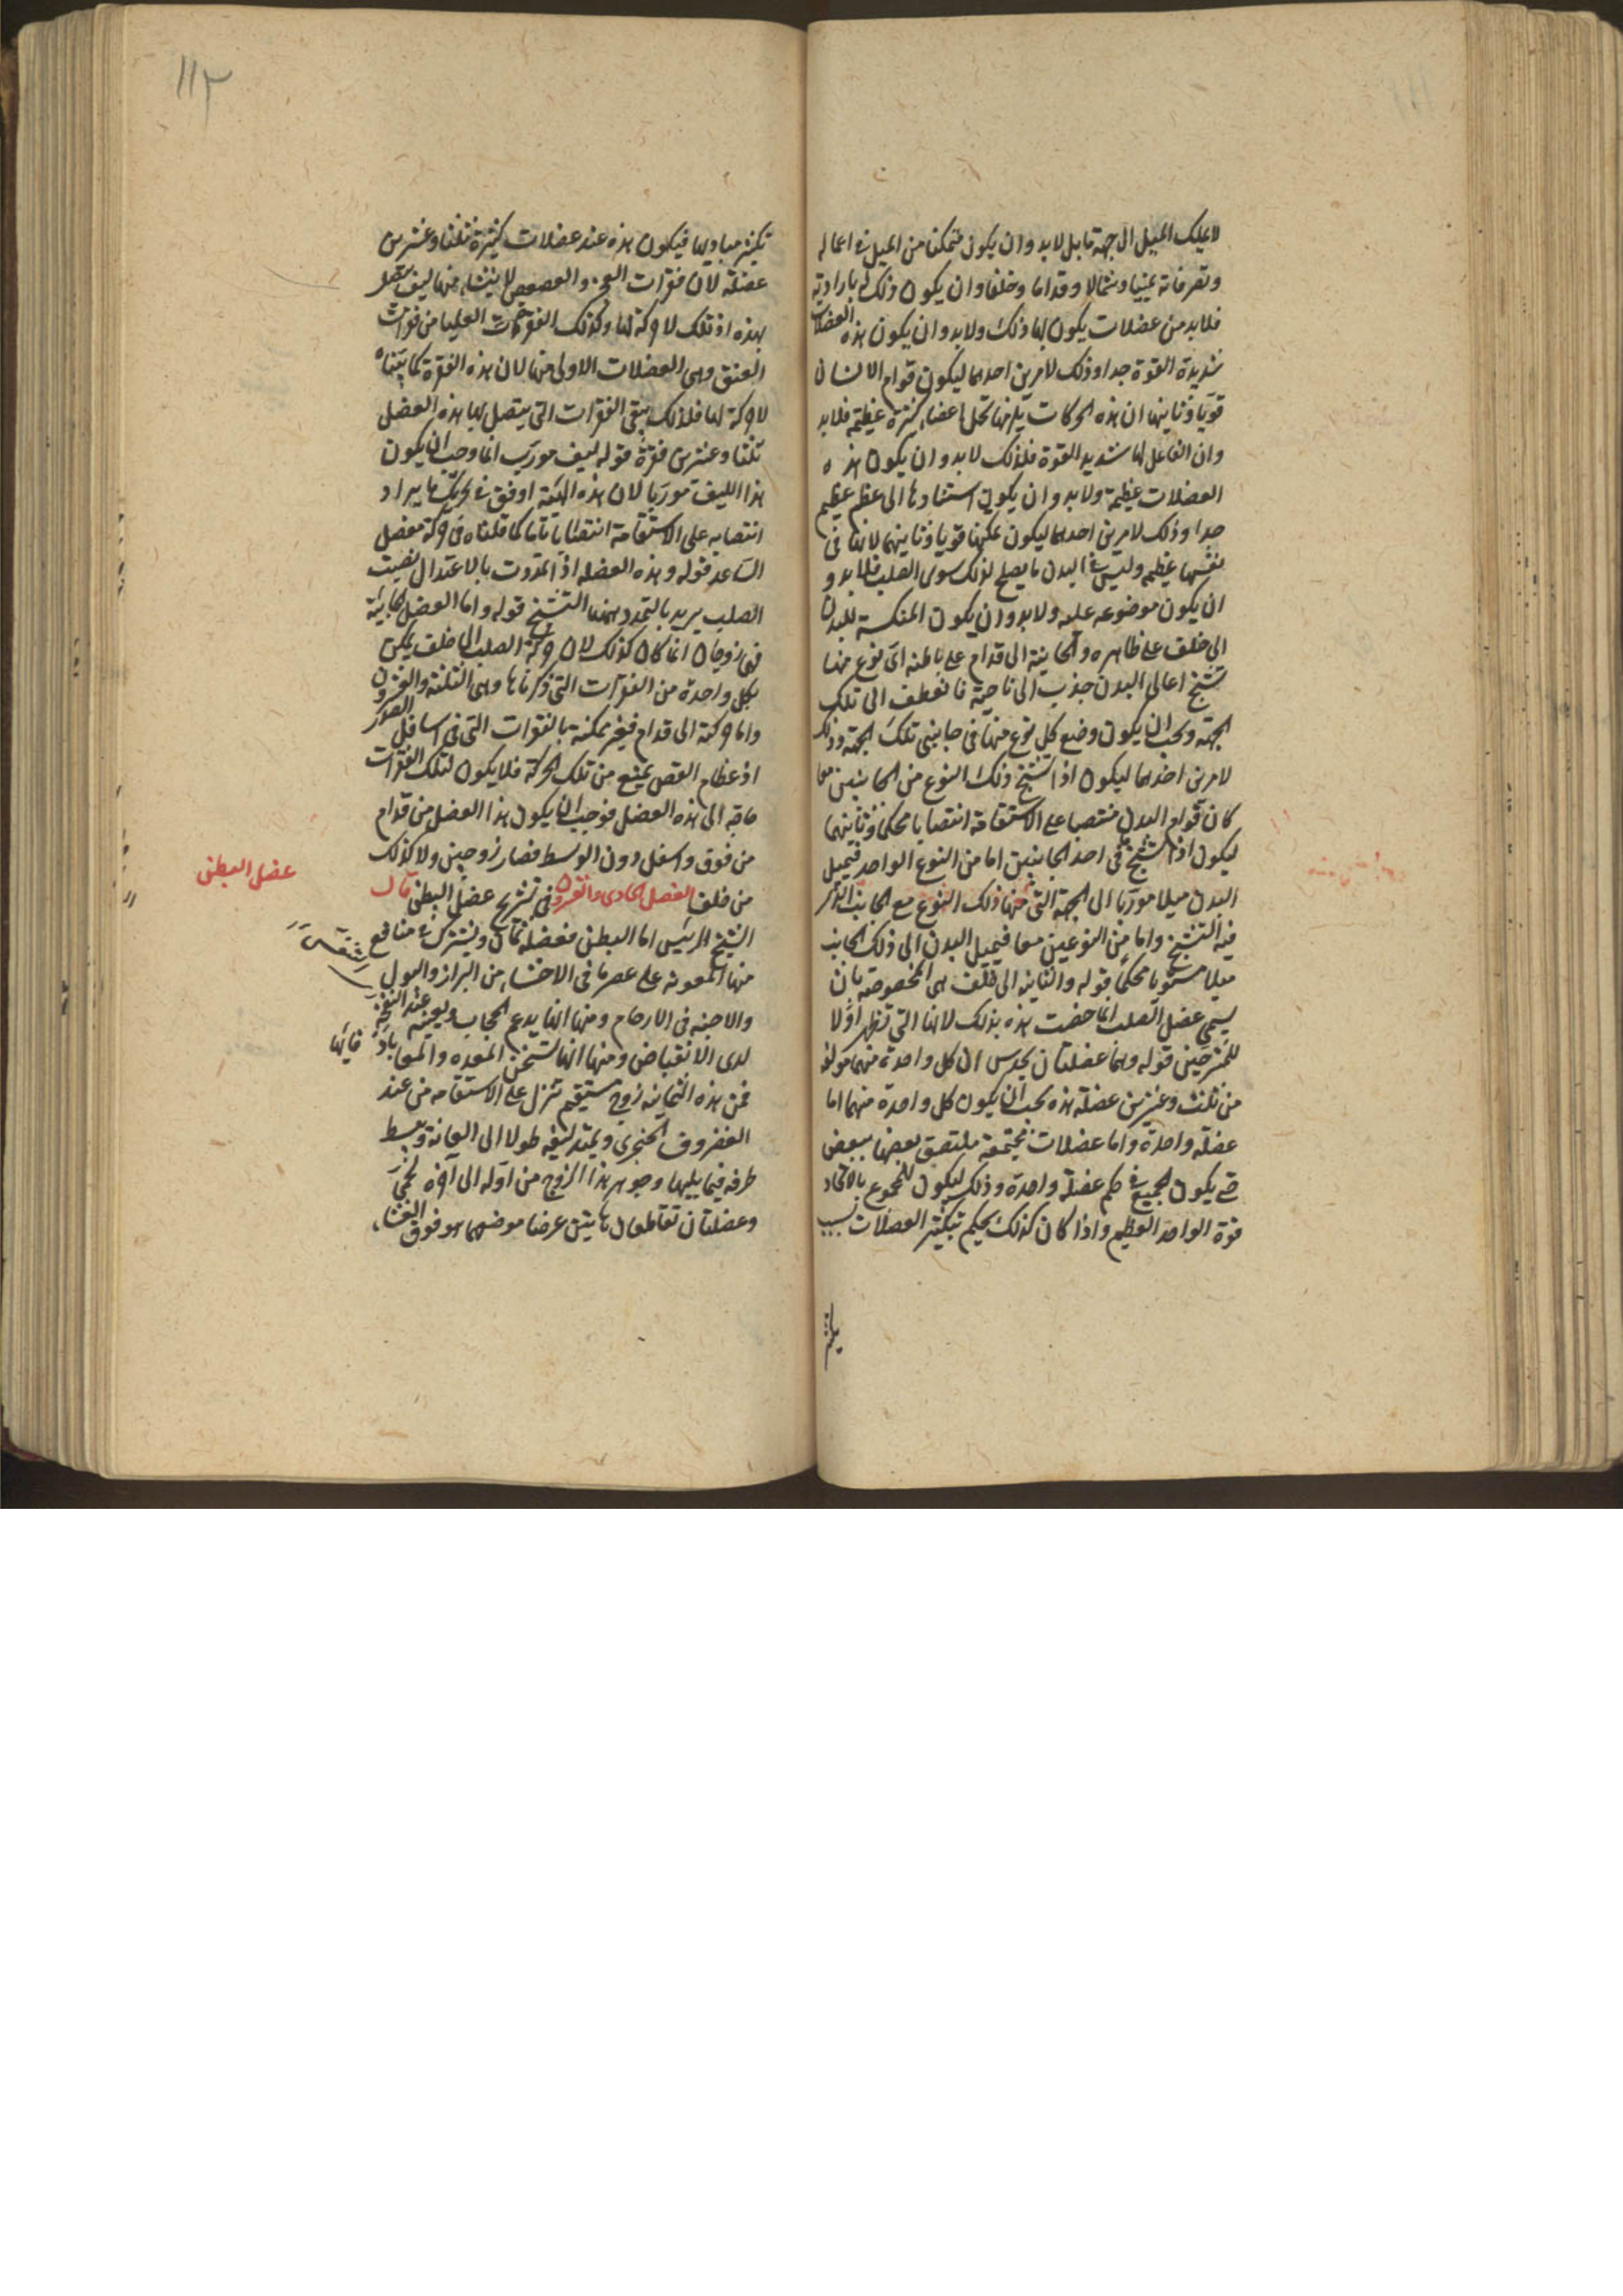 لا يملك الميل الى جهة ما بل لا بد وان يكون متمكنا من الميل فى اعماله
وتصرفاته يمينا وشمالا وقداما وخلفا وان يكون ذلك له بارادته
فلا بد من عضلات يكون لها ذلك ولا بد وان يكون هذه العضلات
شديدة القوة جدا وذلك لامرين احدهما ليكون قوام الانسان
قويا وثانيهما ان هذه الحركات يلزمها تحمل اعضاء كثيرة عظيمة فلا بد
وان الفاعل لها شديد القوة فلذلك لا بد وان يكون هذه
العضلات عظيمة ولا بد وان يكون استنادها الى عظم عظيم
جدا وذلك لامرين احدهما ليكون تمكنها قويا وثانيهما لانها فى
نفسها عظيمة وليس فى البدن ما يصلح لذلك سوى الصلب فلا بد و
ان يكون موضوعه عليه ولا بد وان يكون المنكسة للبدن
الى خلف على ظاهره والحانية الى قدام على باطنه اى نوع منها
تشنج اعالى البدن جذب الى ناحية فانعطف الى تلك
الجهة ويجب ان يكون وضع كل نوع منها فى جانبى تلك الجهة وذلك
لامرين احدهما ليكون اذا تشنج ذلك النوع من الجانبين معا
كان قوام البدن منتصبا على الاستقامة انتصابا محكما وثانيهما
ليكون اذا تشنج فى احد الجانبين اما من النوع الواحد فيميل
البدن ميلا موربا الى الجهة التى منها ذلك النوع مع الجانب الذى
فيه التشنج واما من النوعين معا فيميل البدن الى ذلك الجانب
ميلا مستويا محكما قوله والثانية الى خلف هى المخصوصة بان
يسمى عضل الصلب انما خصت هذه بذلك لانها التى تظهر اولا
للمشرحين قوله وهما عضلتان يحدس ان كل واحدة منهما مولفة
من ثلث وعشرين عضلة هذه يجب ان يكون كل واحدة منهما اما
عضلة واحدة واما عضلات مجتمعة ملتصق بعضها ببعض
حتى يكون الجميع فى حكم عضلة واحدة وذلك ليكون للمجموع بالاتحاد
قوة الواحد العظيم واذا كان كذلك يحكم بتكثير العضلات بسبب
تكثير مباديها فيكون هذه عند عضلات كثيرة ثلثا وعشرين
عضلة لان فقرات العجز والعصعص لا ينشاء منها ليف يتصل
بهذه اذ تلك لا حركة لها وكذلك الفقرات العليا من فقرات
العنق وهى العضلات الاولى منها لان هذه الفقرة كما بيناه
لا حركة لها فلذلك يبقى الفقرات التى يتصل بها هذه العضل
ثلثا وعشرين فقرة قوله ليف مورب انما وجب ان يكون
هذا الليف موربا لان هذه الهيئة اوفق فى تحريك ما يراد
انتصابه على الاستقامة انتصابا تاما كما قلناه فى حركة مفصل
الساعد قوله وهذه العضله اذا تمددت بالاعتدال نصبت
الصلب يريد بالتمدد ههنا التشنج قوله واما العضل الحانية
فهى زوجان انما كان كذلك لان حركة الصلب الى خلف يمكن
بكل واحدة من الفقرات التى ذكرناها وهى الثلثة والعشرون
واما حركته الى قدام فغير ممكنة بالفقرات التى فى اسافل الصدر
اذ عظام القص يمنع من تلك الحركة فلا يكون لتلك الفقرات
حاجة الى هذه العضل فوجب ان يكون هذا العضل من قدام
من فوق واسفل دون الوسط فصار زوجين ولا كذلك
من خلف الفصل الحادى والعشرون فى تشريح عضل البطن قال
عضل البطن
الشيخ الرئيس اما البطن فعضله ثمان ويشترك فى منافع
منها المعونة على عصر ما فى الاحشاء من البراز والبول
والاجنة فى الارحام ومنها انها يدعم الحجاب ويعينه عند النفخة
لدى الانقباض ومنها انها تسخن المعده والمعا بادفائها
فمن هذه الثمانيه زوج مستقيم تنزل على الاستقامه من عند
الغضروف الخنجرى ويمتد ليفه طولا الى العانة وينبسط
طرفه فيما يليها وجوهر هذا الزوج من اوله الى آخره لحمى
وعضلتان تقاطعان هاتين عرضا موضعهما هو فوق الغشاء